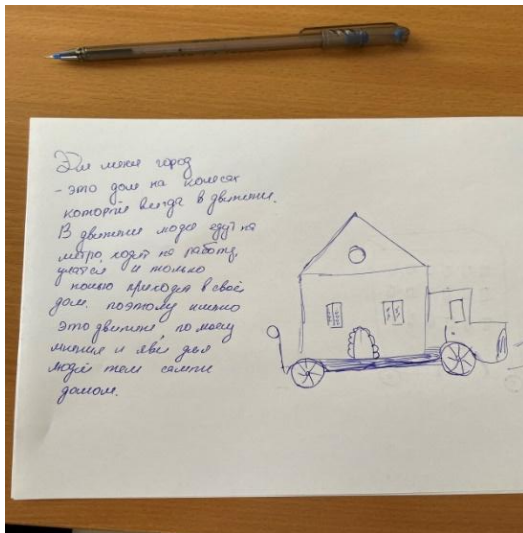 Для меня город
- это дом на колесах
который всегда в движении.
В движение люди едут на
метро, ходят на работу,
учатся и только
ночью приходят в свой
дом. поэтому именно
это движение, по моему
мнения и явл для
людей тем самым
домом.